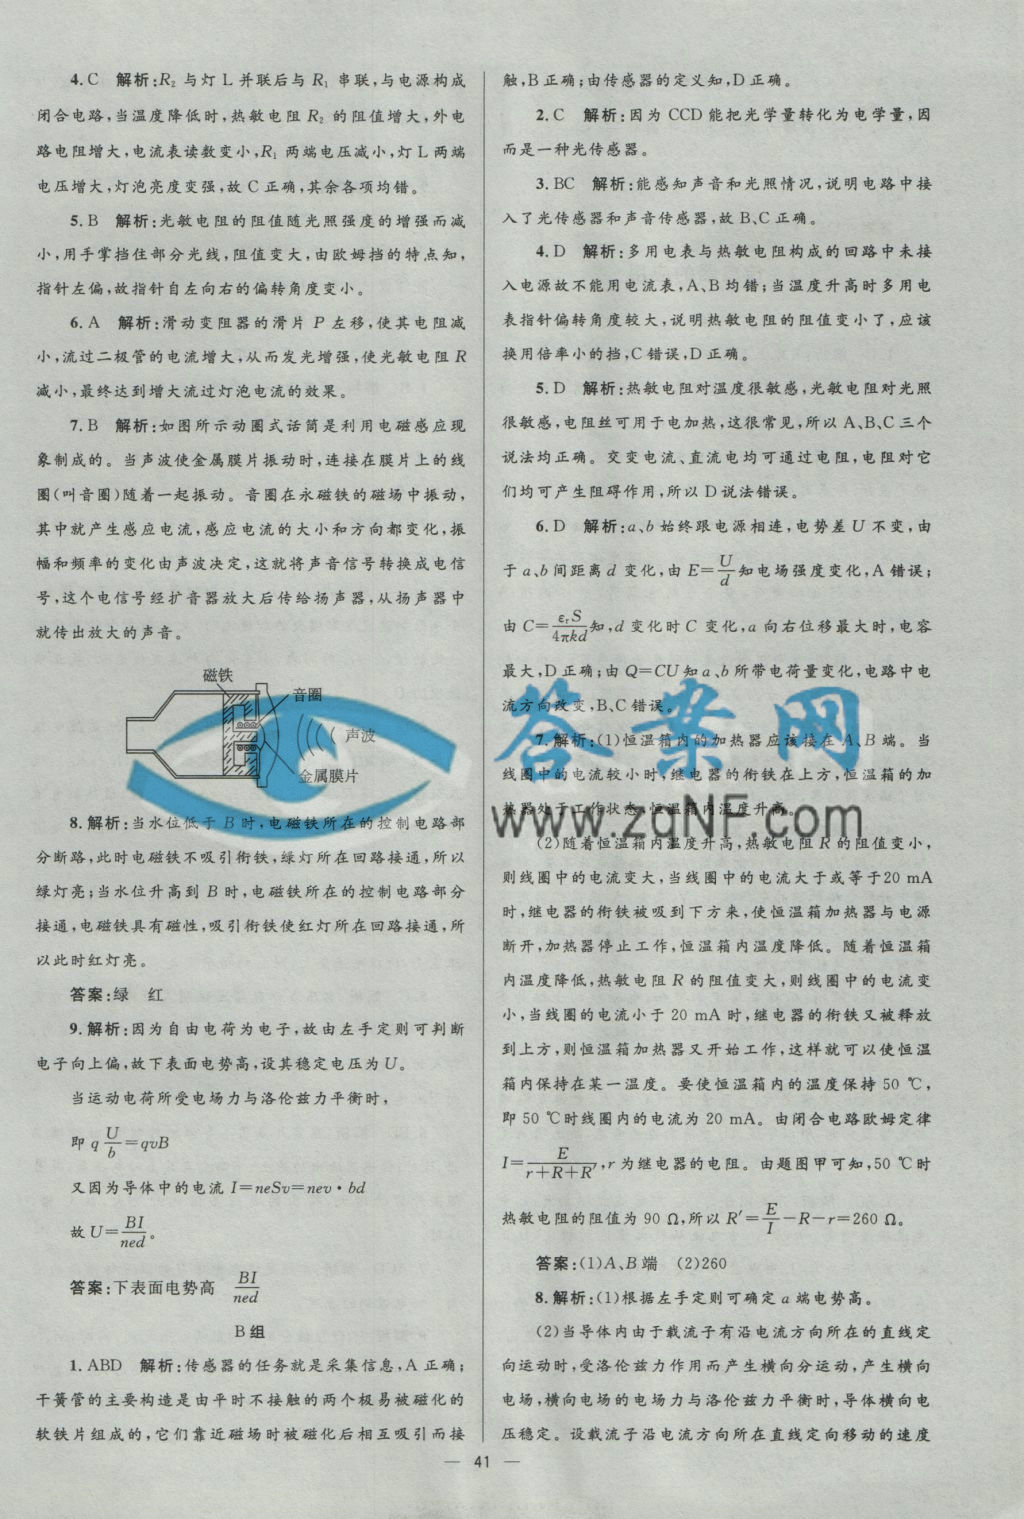 4. C　解析:R₂ 与灯 L 并联后与 R₁ 串联,与电源构成
闭合电路,当温度降低时,热敏电阻 R₂ 的阻值增大,外电
路电阻增大,电流表读数变小,R₁ 两端电压减小,灯 L 两端
电压增大,灯泡亮度变强,故 C 正确,其余各项均错。
5. B　解析:光敏电阻的阻值随光照强度的增强而减
小,用手掌挡住部分光线,阻值变大,由欧姆挡的特点知,
指针左偏,故指针自左向右的偏转角度变小。
6. A　解析:滑动变阻器的滑片 P 左移,使其电阻减
小,流过二极管的电流增大,从而发光增强,使光敏电阻 R
减小,最终达到增大流过灯泡电流的效果。
7. B　解析:如图所示动圈式话筒是利用电磁感应现
象制成的。当声波使金属膜片振动时,连接在膜片上的线
圈(叫音圈)随着一起振动。音圈在永磁铁的磁场中振动,
其中就产生感应电流,感应电流的大小和方向都变化,振
幅和频率的变化由声波决定,这就将声音信号转换成电信
号,这个电信号经扩音器放大后传给扬声器,从扬声器中
就传出放大的声音。
磁铁
音圈
声波
金属膜片
8. 解析:当水位低于 B 时,电磁铁所在的控制电路部
分断路,此时电磁铁不吸引衔铁,绿灯所在回路接通,所以
绿灯亮;当水位升高到 B 时,电磁铁所在的控制电路部分
接通,电磁铁具有磁性,吸引衔铁使红灯所在回路接通,所
以此时红灯亮。
答案:绿　红
9. 解析:因为自由电荷为电子,故由左手定则可判断
电子向上偏,故下表面电势高,设其稳定电压为 U。
当运动电荷所受电场力与洛伦兹力平衡时,
即 q U/b=qvB
又因为导体中的电流 I=neSv=nev·bd
故 U=BI/ned。
答案:下表面电势高　BI/ned
B 组
1. ABD　解析:传感器的任务就是采集信息,A 正确;
干簧管的主要构造是由平时不接触的两个极易被磁化的
软铁片组成的,它们靠近磁场时被磁化后相互吸引而接
触,B 正确;由传感器的定义知,D 正确。
2. C　解析:因为 CCD 能把光学量转化为电学量,因
而是一种光传感器。
3. BC　解析:能感知声音和光照情况,说明电路中接
入了光传感器和声音传感器,故 B、C 正确。
4. D　解析:多用电表与热敏电阻构成的回路中未接
入电源故不能用电流表,A、B 均错;当温度升高时多用电
表指针偏转角度较大,说明热敏电阻的阻值变小了,应该
换用倍率小的挡,C 错误,D 正确。
5. D　解析:热敏电阻对温度很敏感,光敏电阻对光照
很敏感,电阻丝可用于电加热,这很常见,所以 A、B、C 三个
说法均正确。交变电流、直流电均可通过电阻,电阻对它
们均可产生阻碍作用,所以 D 说法错误。
6. D　解析:a、b 始终跟电源相连,电势差 U 不变,由
于 a、b 间距离 d 变化,由 E=U/d知电场强度变化,A 错误;
由 C=εᵣS/4πkd知,d 变化时 C 变化,a 向右位移最大时,电容
最大,D 正确;由 Q=CU 知 a、b 所带电荷量变化,电路中电
流方向改变,B、C 错误。
7. 解析:(1)恒温箱内的加热器应该接在 A、B 端。当
线圈中的电流较小时,继电器的衔铁在上方,恒温箱的加
热器处于工作状态,恒温箱内温度升高。
(2)随着恒温箱内温度升高,热敏电阻 R 的阻值变小,
则线圈中的电流变大,当线圈中的电流大于或等于20 mA
时,继电器的衔铁被吸到下方来,使恒温箱加热器与电源
断开,加热器停止工作,恒温箱内温度降低。随着恒温箱
内温度降低,热敏电阻 R 的阻值变大,则线圈中的电流变
小,当线圈的电流小于 20 mA 时,继电器的衔铁又被释放
到上方,则恒温箱加热器又开始工作,这样就可以使恒温
箱内保持在某一温度。要使恒温箱内的温度保持 50 ℃,
即 50 ℃时线圈内的电流为 20 mA。由闭合电路欧姆定律
I=E/(r+R+R′),r 为继电器的电阻。由题图甲可知,50 ℃时
热敏电阻的阻值为 90 Ω,所以 R′=E/I−R−r=260 Ω。
答案:(1)A、B 端　(2)260
8. 解析:(1)根据左手定则可确定 a 端电势高。
(2)当导体内由于载流子有沿电流方向所在的直线定
向运动时,受洛伦兹力作用而产生横向分运动,产生横向
电场,横向电场的电场力与洛伦兹力平衡时,导体横向电
压稳定。设载流子沿电流方向所在直线定向移动的速度
— 41 —
答案网
www.zqNF.com